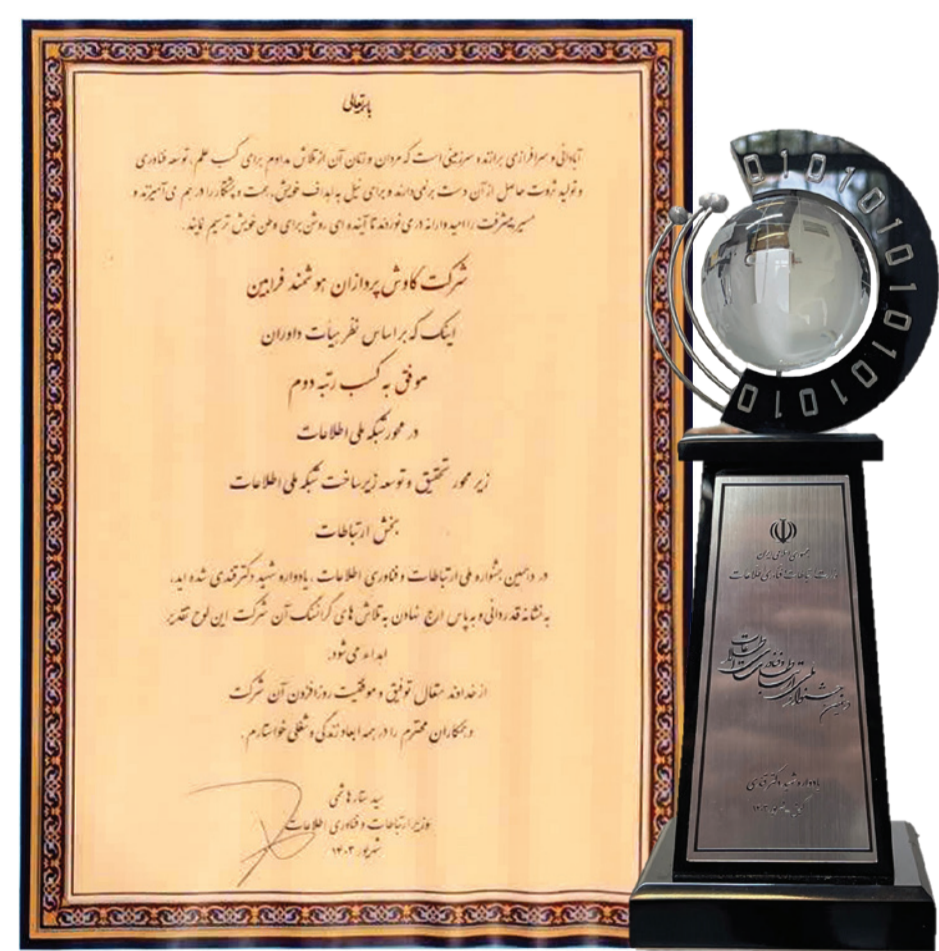 باسمه‌تعالی
آبادانی و سرافرازی برازنده سرزمینی است که مردان و زنان آن از تلاش مداوم برای کسب علم، توسعه فناوری
و تولید ثروت حاصل از آن دست برنمی‌دارند و برای نیل به اهداف خویش، همت و پشتکار را در هم می‌آمیزند و
مسیر پیشرفت را امیدوارانه در می‌نوردند تا آینده ای روشن برای وطن خویش ترسیم نمایند.
شرکت کاوش پردازان هوشمند فرابین
اینک که بر اساس نظر هیأت داوران
موفق به کسب رتبه دوم
در محور شبکه ملی اطلاعات
زیر محور تحقیق و توسعه زیرساخت شبکه ملی اطلاعات
بخش ارتباطات
در دهمین جشنواره ملی ارتباطات و فناوری اطلاعات، یادواره شهید دکتر قندی شده اید،
به نشانه قدردانی و به پاس ارج نهادن به تلاش های گرانسنگ آن شرکت این لوح تقدیر
اهداء می شود.
از خداوند متعال توفیق و موفقیت روزافزون آن شرکت
و همکاران محترم را در همه ابعاد زندگی و شغلی خواستارم.
سید ستار هاشمی
وزیر ارتباطات و فناوری اطلاعات
شهریور ۱۴۰۳
0101010101010101010
جمهوری اسلامی ایران
وزارت ارتباطات و فناوری اطلاعات
دهمین جشنواره ملی ارتباطات و فناوری اطلاعات
یادواره شهید دکتر قندی